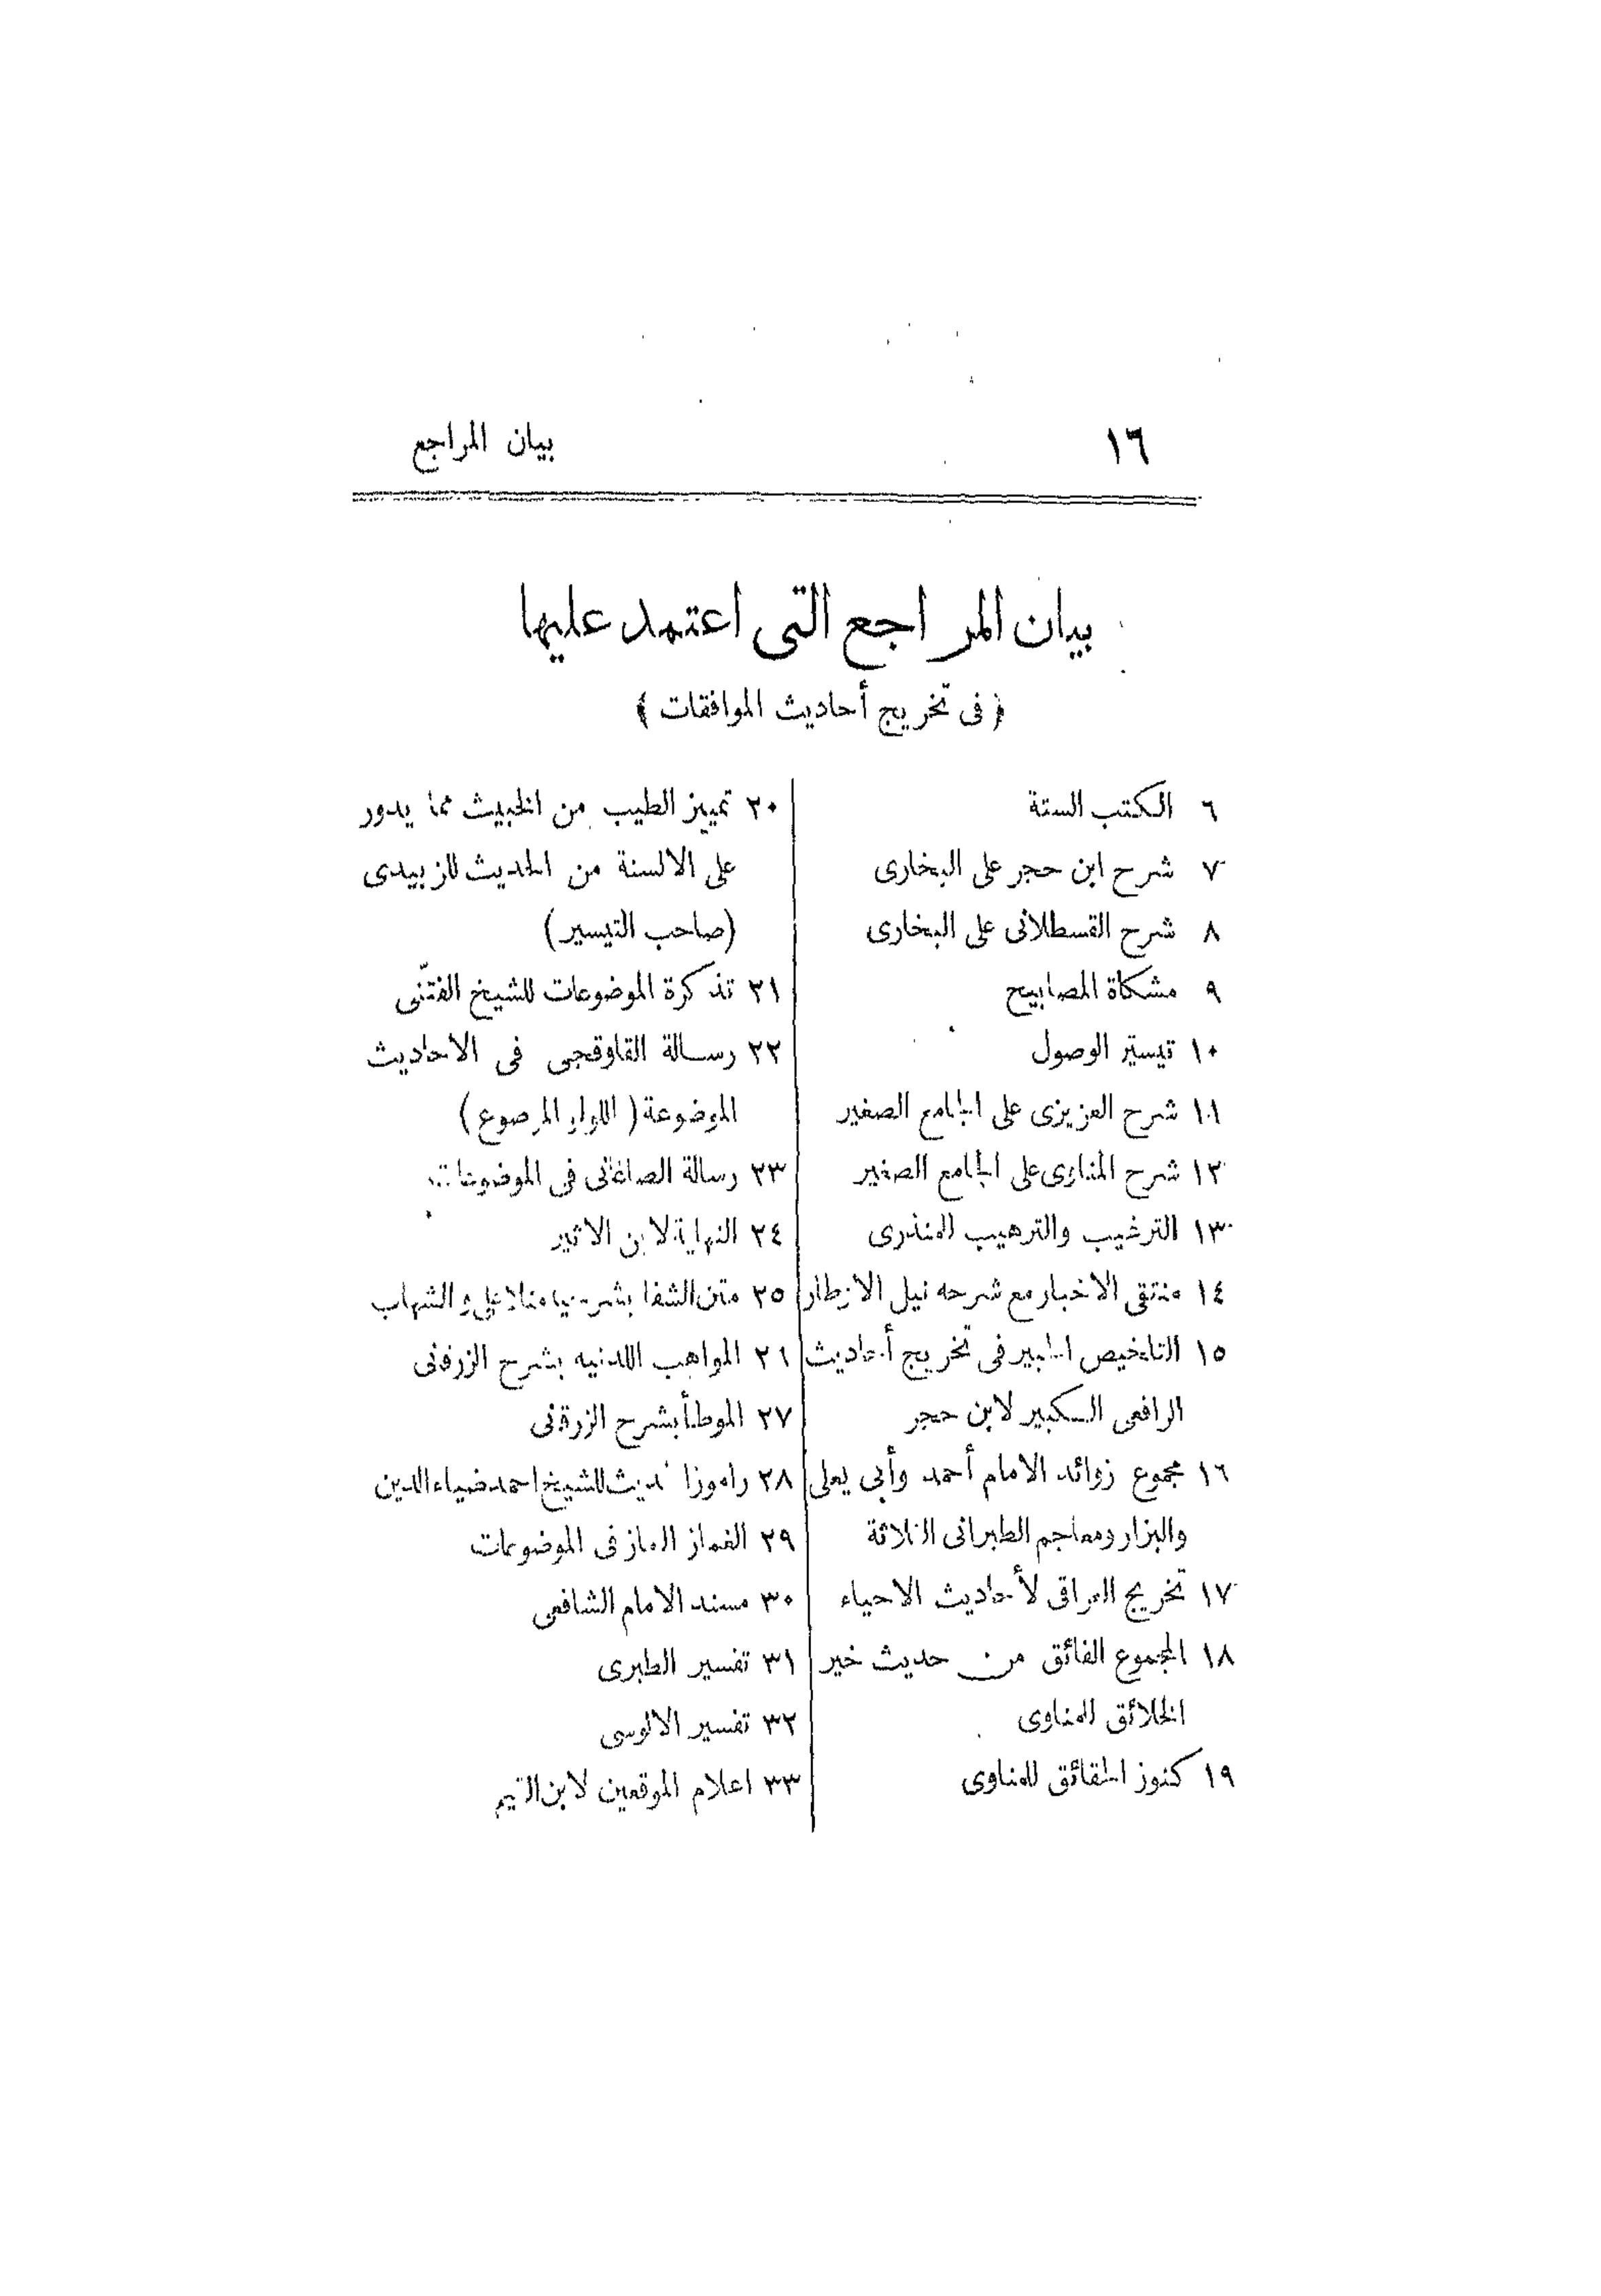 ١٦
بيان المراجع
بيان المراجع التى اعتمد عليها
﴿ فى تخريج أحاديث الموافقات ﴾
٦ الكتب الستة
٧ شرح ابن حجر على البخارى
٨ شرح القسطلانى على البخارى
٩ مشكاة المصابيح
١٠ تيسير الوصول
١١ شرح العزيزى على الجامع الصغير
١٢ شرح المناوى على الجامع الصغير
١٣ الترغيب والترهيب للمنذرى
١٤ منتقى الاخبار مع شرحه نيل الاوطار
١٥ التلخيص الحبير فى تخريج أحاديث
الرافعى الكبير لابن حجر
١٦ مجموع زوائد الامام أحمد وأبى يعلى
والبزار ومعاجم الطبرانى الثلاثة
١٧ تخريج العراقى لأحاديث الاحياء
١٨ المجموع الفائق من حديث خير
الخلائق للمناوى
١٩ كنوز الحقائق للمناوى
٢٠ تمييز الطيب من الخبيث مما يدور
على الالسنة من الحديث للزبيدى
(صاحب التيسير)
٢١ تذكرة الموضوعات للشيخ الفتّنى
٢٢ رسالة القاوقجى فى الاحاديث
الموضوعة ( اللؤلؤ المرصوع )
٢٣ رسالة الصاغانى فى الموضوعات
٢٤ النهاية لابن الاثير
٢٥ متن الشفا بشرحى منلا على والشهاب
٢٦ المواهب اللدنيه بشرح الزرقانى
٢٧ الموطأ بشرح الزرقانى
٢٨ راموز للشيخ احمد ضياء الدين
٢٩ الغماز اللماز فى الموضوعات
٣٠ مسند الامام الشافعى
٣١ تفسير الطبرى
٣٢ تفسير الالوسى
٣٣ اعلام الموقعين لابن القيم